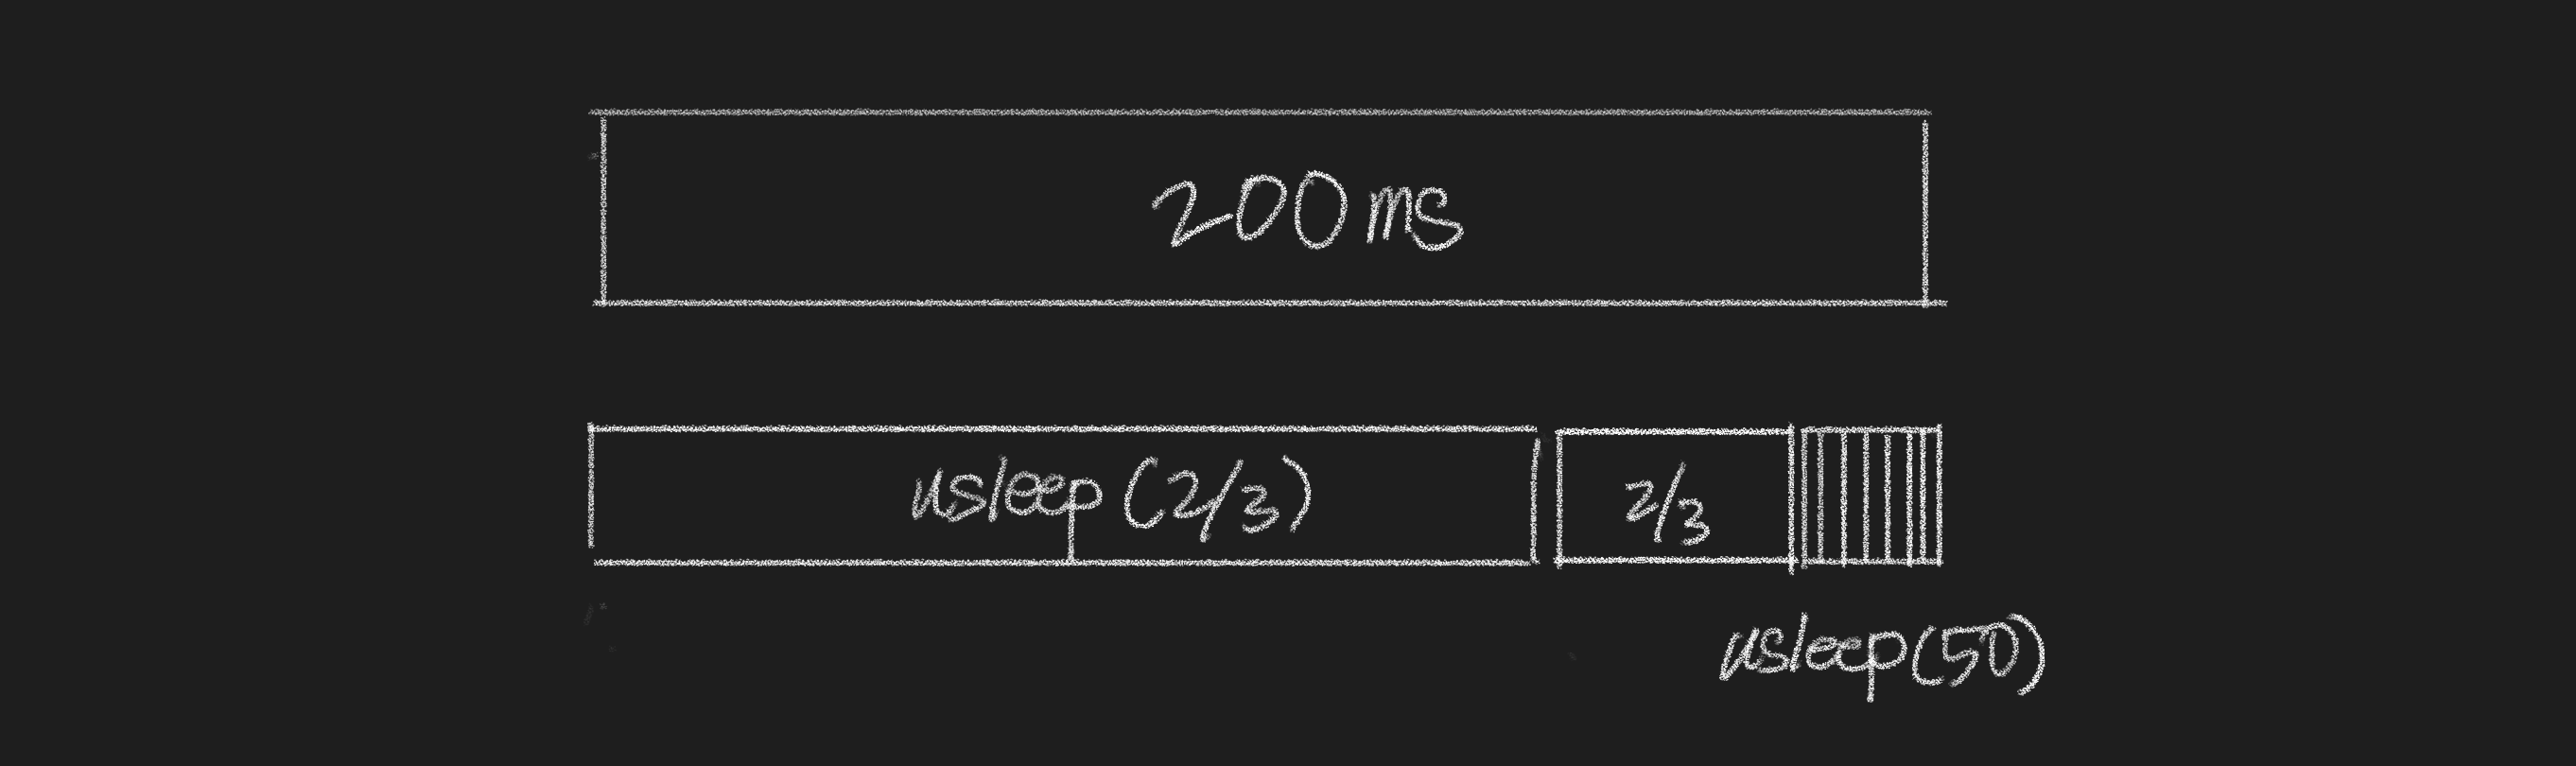 200ms
usleep (2/3)
2/3
usleep(50)